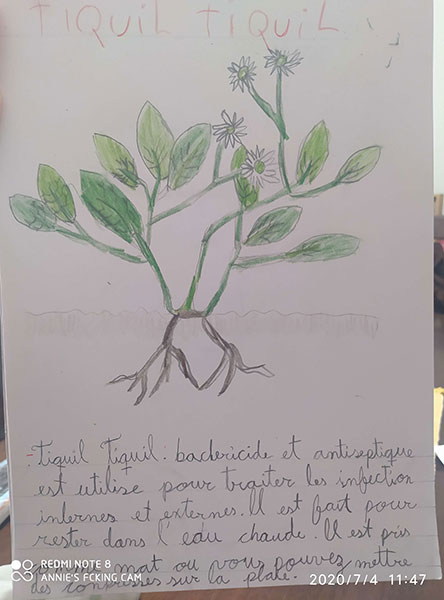 TIQUIL TIQUIL
-Tiquil Tiquil: bactericide et antiseptique
est utilise pour traiter les infection
internes et externes. Il est fait pour
rester dans l'eau chaude. Il est pris
mat ou vous pouvez mettre
des compresses sur la plate.
REDMI NOTE 8
ANNIE'S FCKING CAM
2020/7/4 11:47